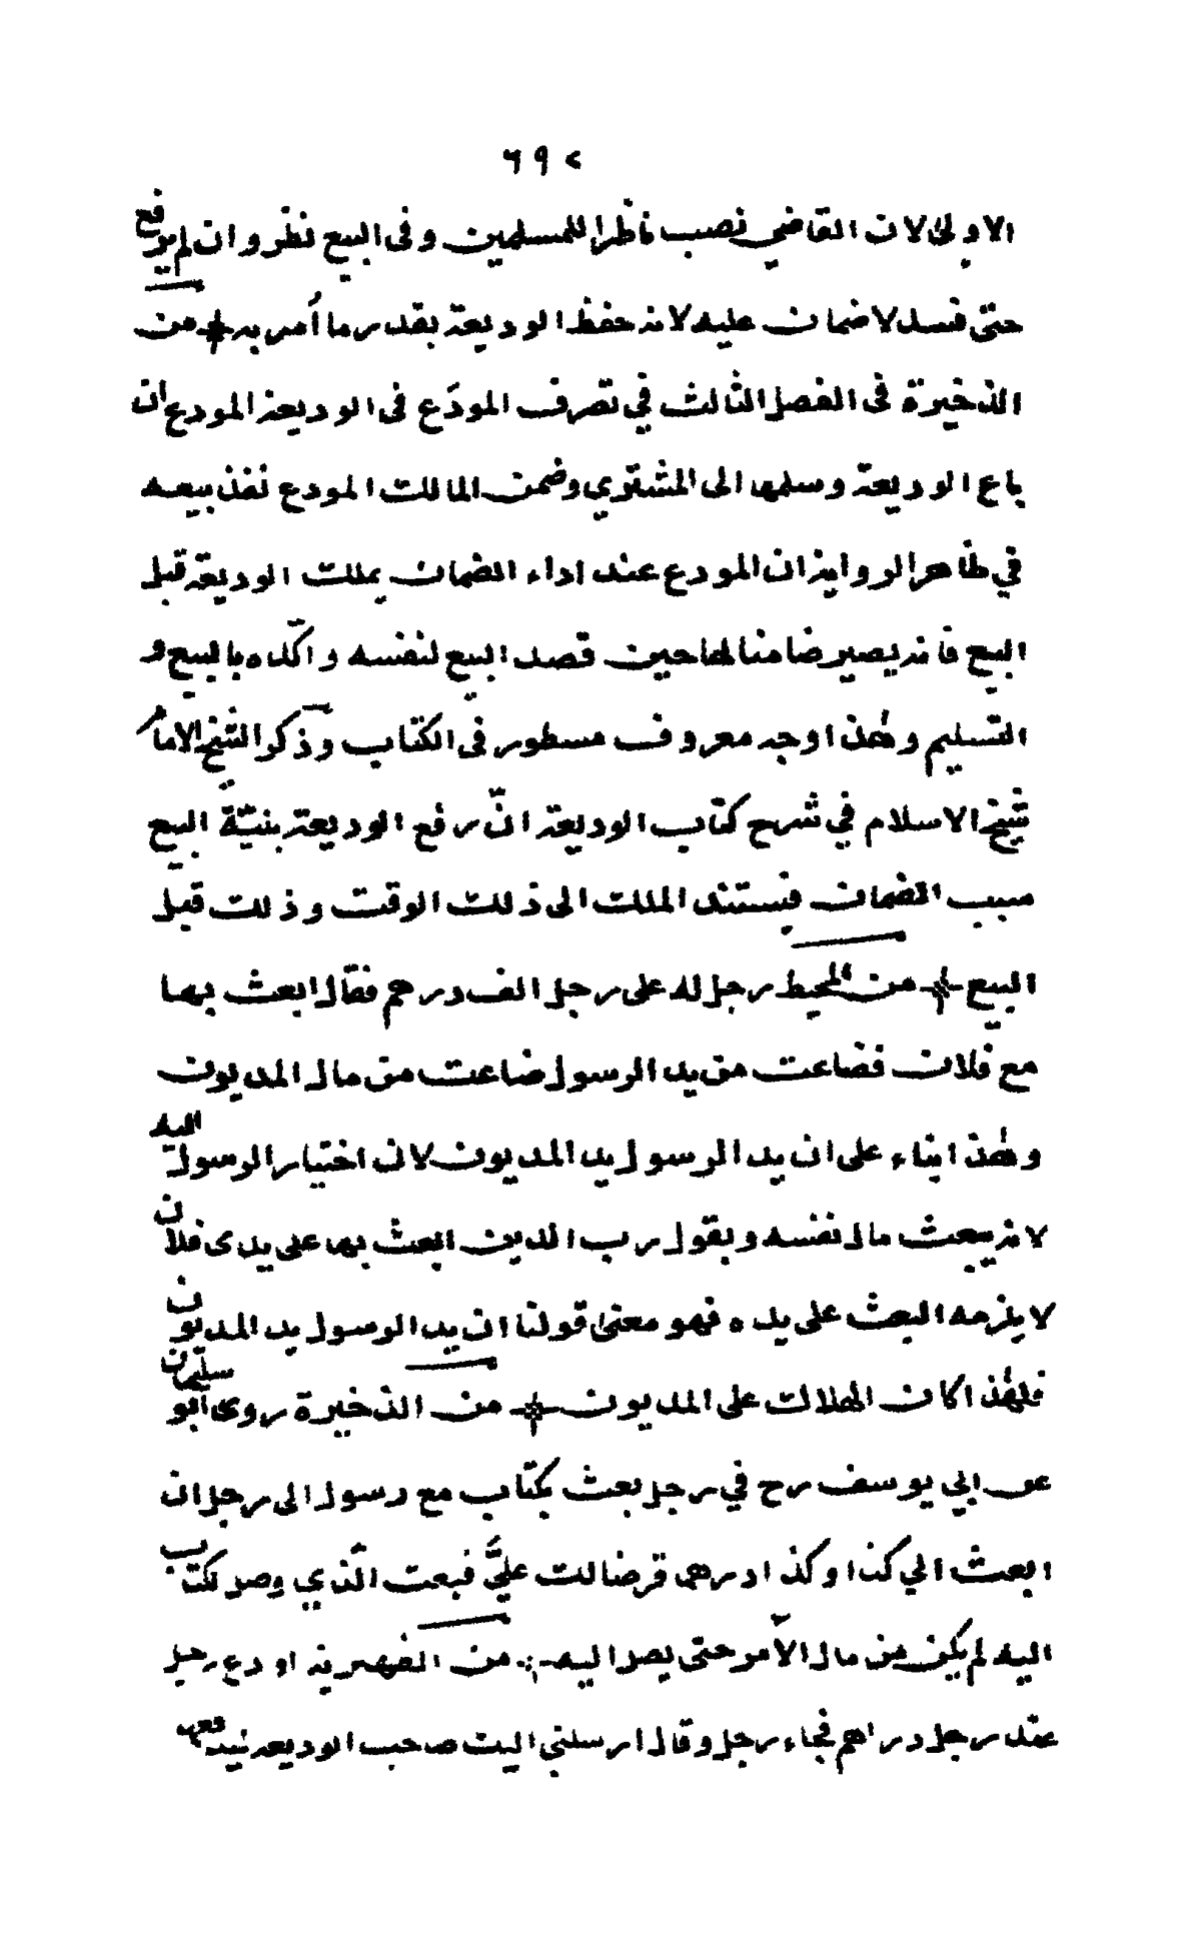 ٦٩٢
الاولى لان القاضي نصب ناظرا للمسلمين وفى البيع نظر وان لم يرفع
حتى فسد لا ضمان عليه لانه حفظ الوديعة بقدر ما أمر به من
الذخيرة فى الفصل الثالث في تصرف المودَع فى الوديعة المودع ان
باع الوديعة وسلمها الى المشتري وضمن المالك المودع نفذ بيعه
في ظاهر الرواية ان المودع عند اداء الضمان يملك الوديعة قبل
البيع فانه يصير ضامنا لها حين قصد البيع لنفسه واكّده بالبيع و
التسليم وهذا وجه معروف مسطور فى الكتاب وذكر الشيخ الامام
شيخ الاسلام في شرح كتاب الوديعة انّ رفع الوديعة بنيّة البيع
سبب الضمان فيستند الملك الى ذلك الوقت وذلك قبل
البيع من المحيط رجل له على رجل الف درهم فقال ابعث بها
مع فلان فضاعت من يد الرسول ضاعت من مال المديون
وهذا بناء على ان يد الرسول يد المديون لان اختيار الرسول اليه
لانه يبعث مال نفسه وبقول رب الدين ابعث بها على يدى فلان
لا يلزمه البعث على يده فهو معنى قولنا ان يد الرسول يد المديون
فلهذا كان الهلاك على المديون من الذخيرة روى ابو سليمان
عن ابي يوسف رح في رجل بعث بكتاب مع رسول الى رجل ان
ابعث الي كذا وكذا درهم قرضا لك عليَّ فبعث مع الّذي وصل بكتاب
اليه لم يكن من مال الآمر حتى يصل اليه من الظهيرية اودع رجل
عند رجل دراهم فجاء رجل وقال ارسلني اليك صاحب الوديعة